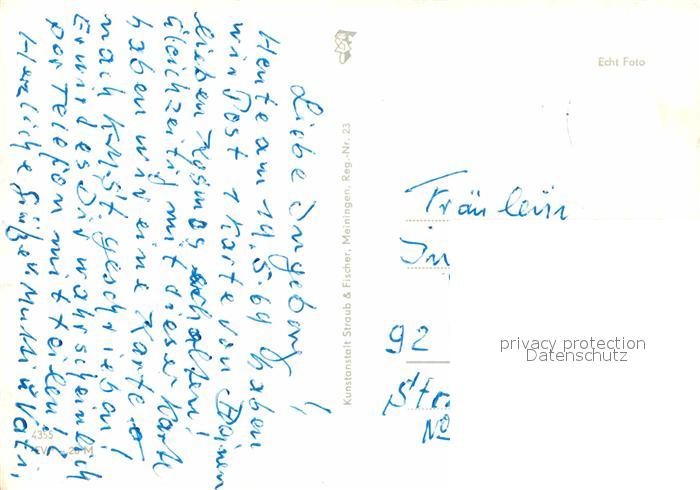 Liebe Ingeborg!
Heute am 14.5.69 haben
wir Post 1 Karte von Deinen
lieben erhalten!
Gleichzeitig mit dieser Karte
haben wir eine Karte
nach geschrieben!
Er wird es Dir wahrscheinlich
per Telefon mitteilen!
Herzliche Grüße v. Mutti u Vati,
4355
20 M
Kunstanstalt Straub & Fischer, Meiningen, Reg.-Nr. 23
Echt Foto
Fräulein
92
privacy protection
Datenschutz
No